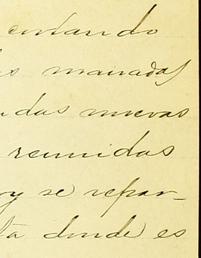 cuando
manadas
das nuevas
reunidas
oy se repar-
ta donde es